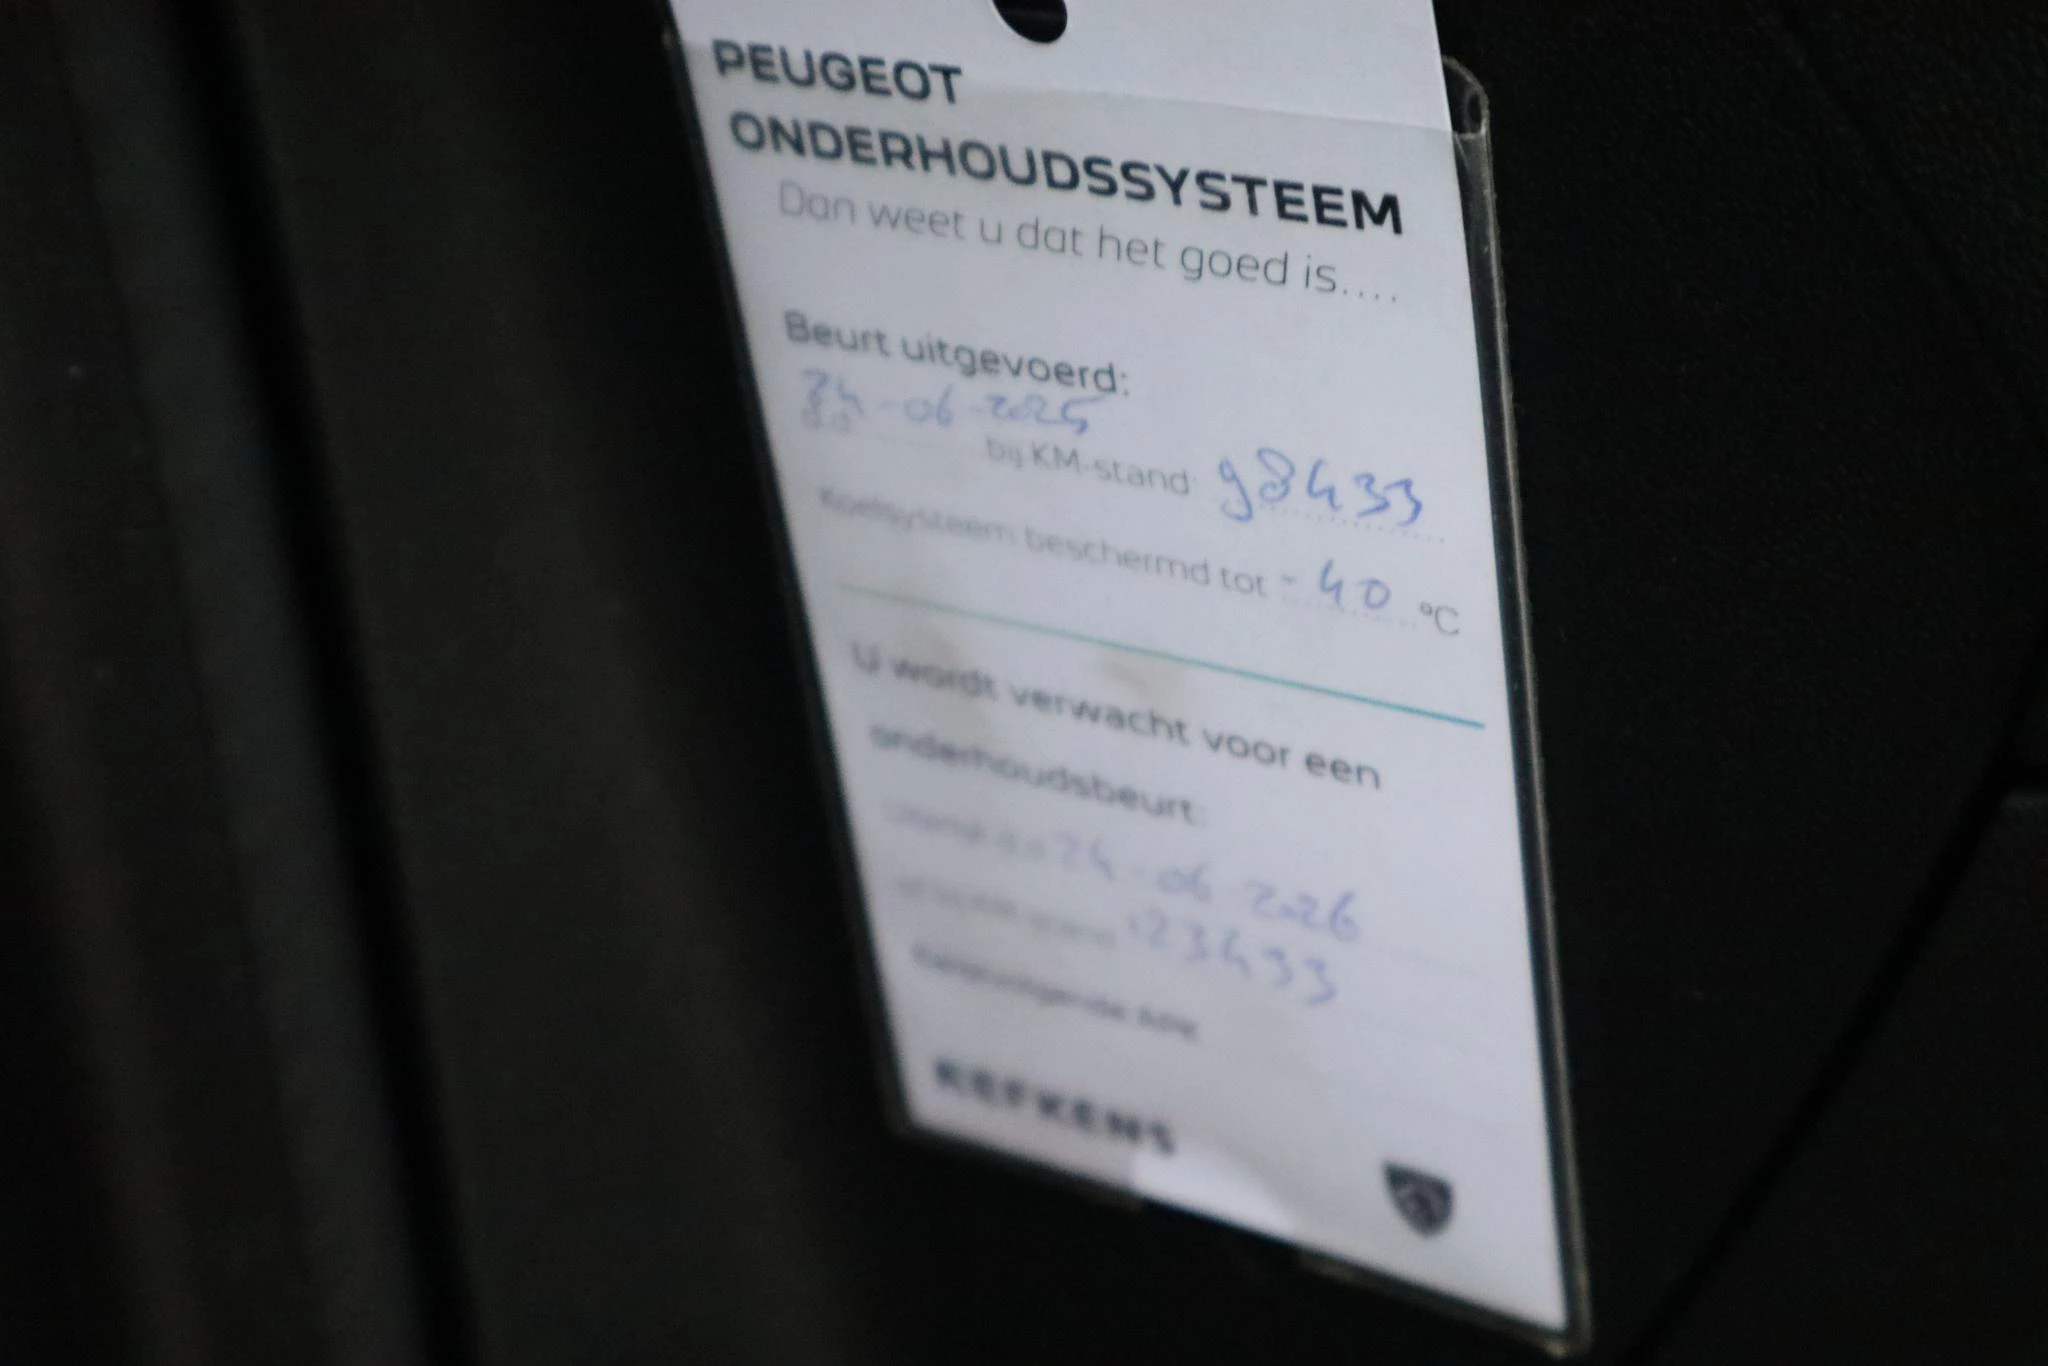 PEUGEOT
ONDERHOUDSSYSTEEM
Dan weet u dat het goed is....
Beurt uitgevoerd:
24-06 2025
bij KM-stand: 98433
Koelsysteem beschermd tot -40 °C
U wordt verwacht voor een
onderhoudsbeurt:
24-06 2026
123433
APK
KEFKENS